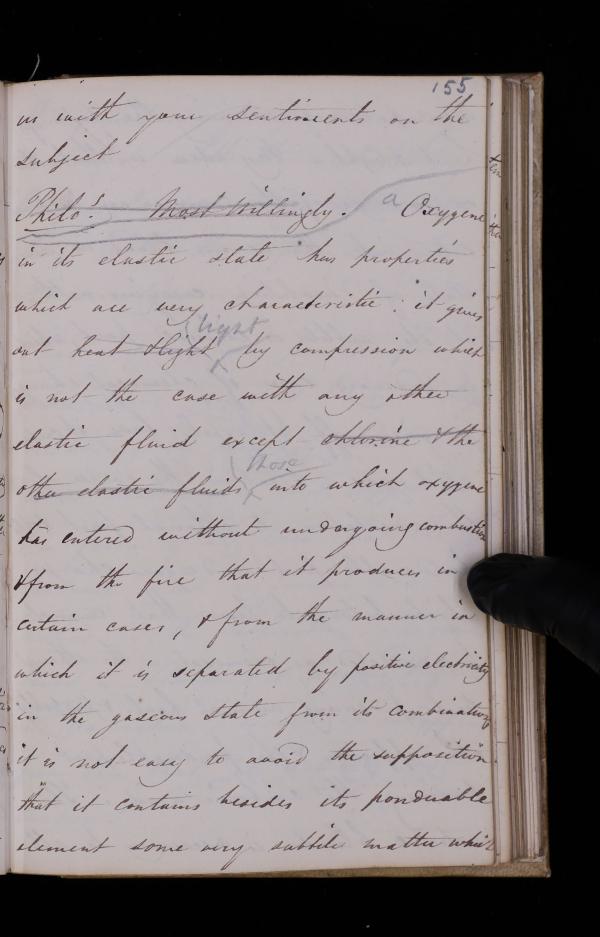 155
us with your sentiments on the
subject
Philo.s Most Willingly. a Oxygene
in its elastic state has properties
which are very characteristic: it gives
light
out heat & light by compression which
is not the case with any other
elastic fluid except chlorine & the
those
other elastic fluids into which oxygene
has entered without undergoing combustion
& from the fire that it produces in
certain cases, & from the manner in
which it is separated by positive electricity
in the gaseous state from its combinations
it is not easy to avoid the supposition
that it contains besides its ponderable
element some very subtile matter which